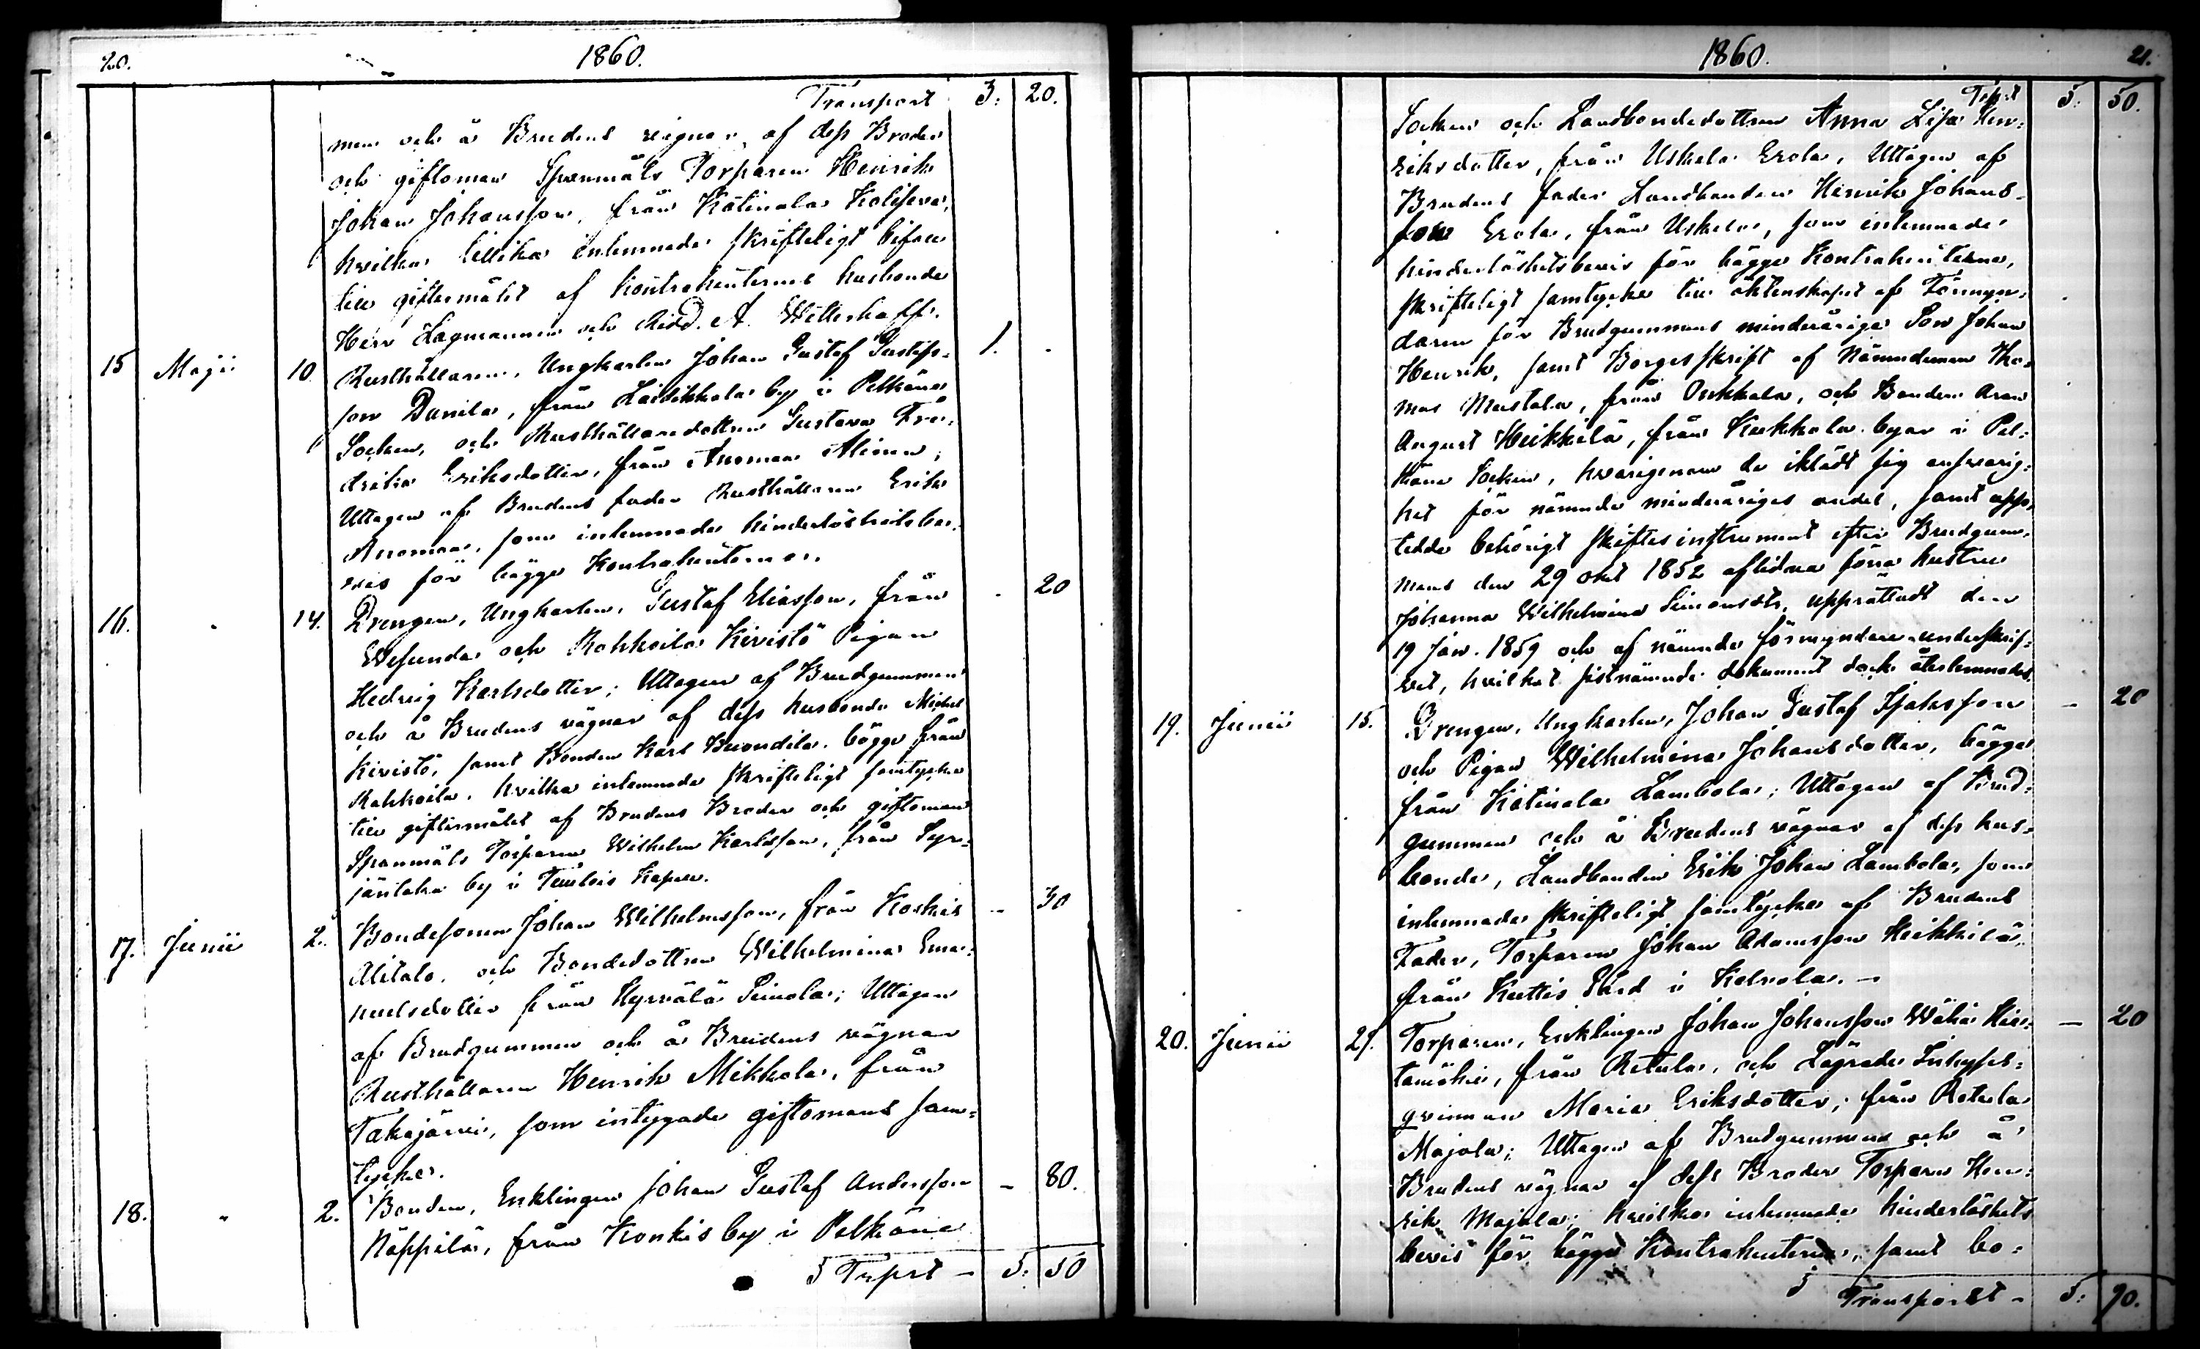 20. 1860.
Transport 3. 20.
men och å Brudens vägnar af dess Broder
och giftoman Spanmåls Torparen Henrik
Johan Johansson, från Kätinala
hvilka inlemnade skrifteligt bifall
till giftermålet af Kontrahenternas husbonde
Herr Lagmannen och Ridd. A. Wetterhoff.
15 Maji 10. Rusthållaren, Ungkarlen Johan Gustaf Gustafs- 1. -
son Danila, från Laidikkala by i Pelkäne
Socken, och Rusthållaredottren Gustava Fre-
drika Eriksdotter, från Anomaa Alinen,
Uttagen af Brudens fader Rusthållaren Erik
Anomaa, som inlemnade hinderlöshetsbe-
vis för bägge Kontrahenterna.
16. " 14. Drengen, Ungkarlen, Gustaf Eliasson, från - 20
Wesunda och Rahkoila Kivistö Pigan
Hedvig Karlsdotter; Uttagen af Brudgummen
och å Brudens vägnar af dess husbonde Michel
Kivistö, samt Bonden Karl bägge från
Rahkoila, hvilka inlemnade skrifteligt samtycke
till giftermålet af Brudens Broder och giftoman
Spanmåls Torparen Wilhelm Karlsson, från Syr-
jäntaka by i Tuulois Kapell.
17. Junii 2. Bondesonen Johan Wilhelmsson, från Koskis - 30
Alitalo, och Bondedottren Wilhelmina Ema-
nuelsdotter från Hyrvälä Simola; Uttagen
af Brudgummen och å Brudens vägnar
Rusthållaren Henrik Mikkola, från
Takajärvi, som intygade giftomans sam-
tycke.
18. " 2. Bonden, Enklingen Johan Gustaf Andersson - 80.
Näppilä, från Konkis by i Pelkäne
Trsprt - 5. 50
1860. 21.
Trsprt 5. 50.
Socken och Landbondedottren Anna Lisa Hen-
riksdotter, från Uskela Erola, Uttagen af
Brudens fader Landbonden Henrik Johans-
son Erola, från Uskela, som inlemnade
hinderlöshetsbevis för bägge Kontrahenterna,
skrifteligt samtycke till äktenskapet af Förmyn-
daren för Brudgummens minderåriga Son Johan
Henrik, samt Borgesskrift af Nämndeman Tho-
mas Mastala, från Onkkala, och Bonden Aron
August Heikkilä, från Kukkola byar i Pel-
käne Socken, hvarigenom de iklädt sig ansvarig-
het för nämnde minderåriges andel, samt upp-
tedde behörigt skiftesinstrument efter Brudgum-
mens den 29 okt 1852 aflidna förra hustru
Johanna Wilhelmina Simonsdtr, upprättadt den
19 Jan. 1859 och af nämnde förmyndare underskrif-
vet, hvilket sistnämnde dokument dock återlemnades
19. Junii 15. Drengen, Ungkarlen, Johan Gustaf Isaksson - 20
och Pigan Wilhelmina Johansdotter, bägge
från Kätinala Lambola; Uttagen af Brud-
gummen och å Brudens vägnar af dess hus-
bonde, Landbonden Erik Johan Lambola, som
inlemnade skrifteligt samtycke af Brudens
Fader, Torparen Johan Adamsson Heikkilä,
från Kuttis Gård i Kalvola. -
20. Junii 29. Torparen, Enklingen Johan Johansson Wähä Hin- - 20
tamäki, från Retula, och Lägrade Inhyses-
qvinnan Maria Eriksdotter, från Retula
Majala; Uttagen af Brudgummen och å
Brudens vägnar af dess Broder Torparen Hen-
rik Majala; hvilka inlemnade hinderlöshets
bevis för bägge Kontrahenterna, samt bo-
Transport - 5. 90.